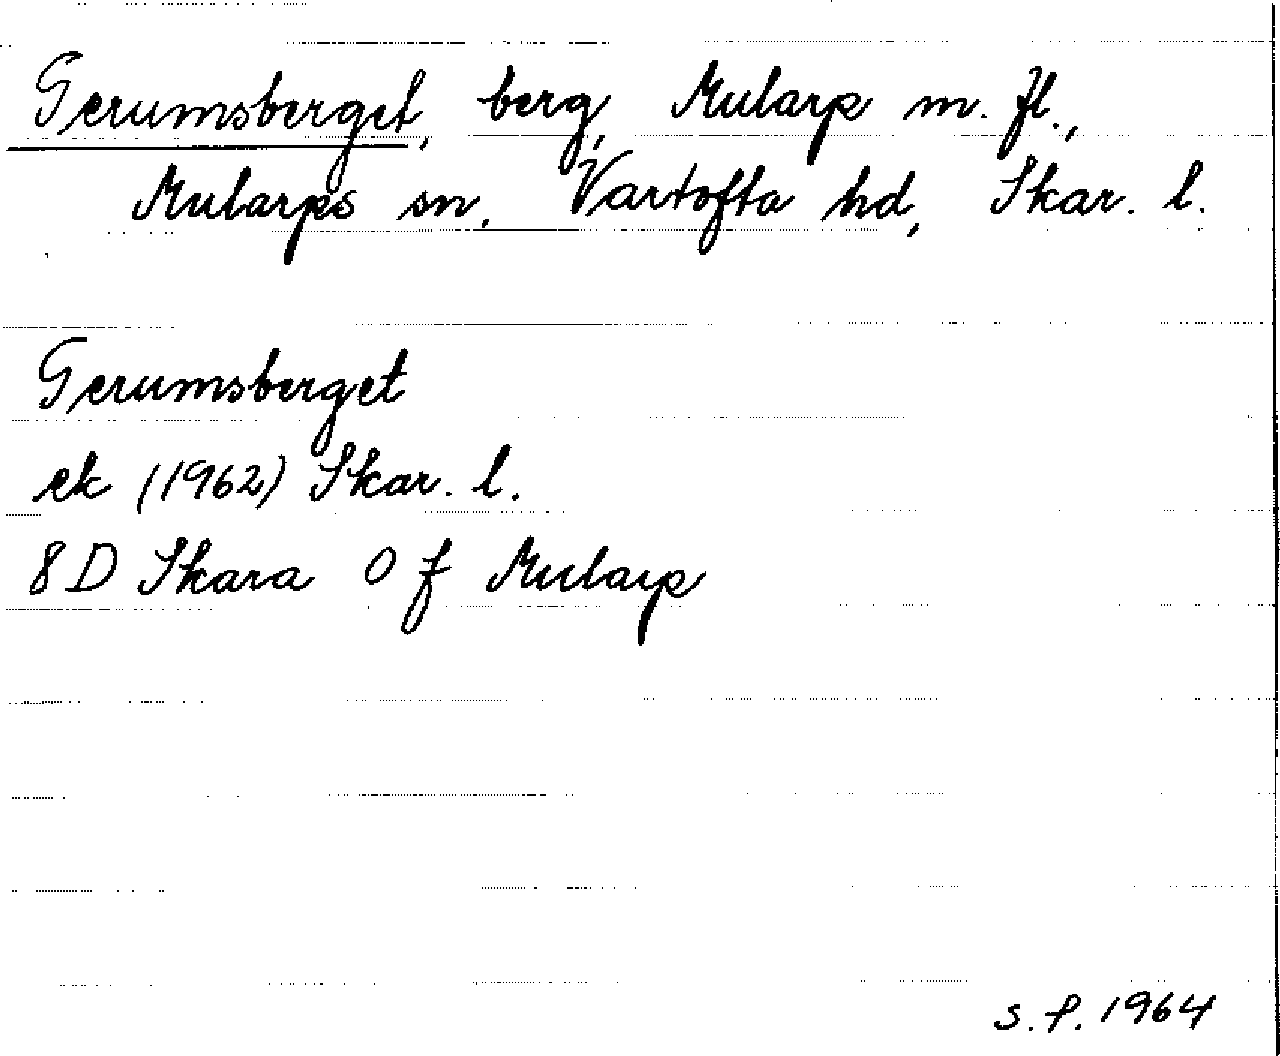 Gerumsberget, berg, Mularp m. fl.,
Mularps sn, Vartofta hd, Skar. l.
Gerumsberget
ek (1962) Skar. l.
8 D Skara O f Mularp
s. f. 1964